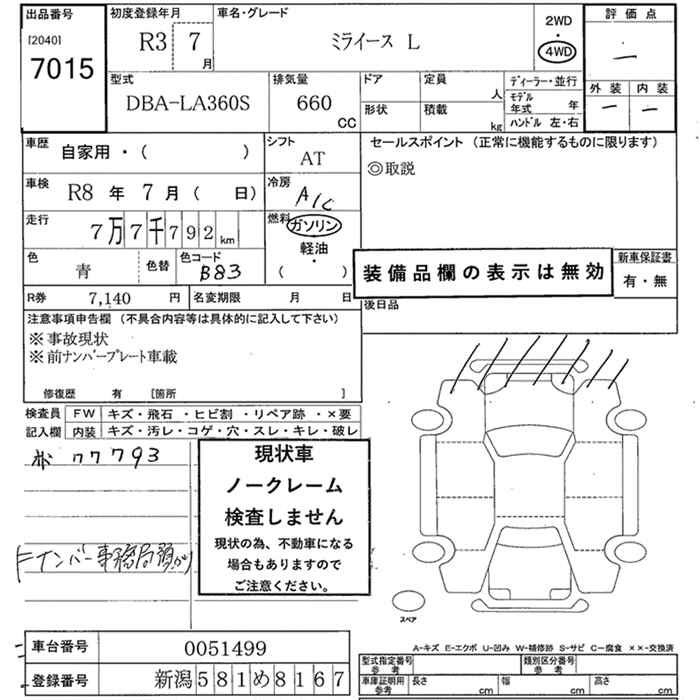 出品番号
[2040]
7015
初度登録年月
R3 7
月
車名・グレード
ミライース L
2WD
・
4WD
評価点
―
外装 内装
― ―
型式
DBA-LA360S
排気量
660
CC
ドア
定員
人
形状
積載
kg
ディーラー・並行
モデル
年式 年
ハンドル 左・右
車歴
自家用・( )
シフト
AT
セールスポイント (正常に機能するものに限ります)
◎取説
車検
R8 年 7 月 ( 日)
冷房
A/C
走行
7万7千792 km
燃料
ガソリン
軽油
・
( )
色
青
色替
色コード
B83
装備品欄の表示は無効
新車保証書
有・無
後日品
R券
7,140 円
名変期限 月 日
注意事項申告欄 (不具合内容等は具体的に記入して下さい)
※事故現状
※前ナンバープレート車載
修復歴 有 [箇所 ]
検査員
記入欄
FW キズ・飛石・ヒビ割・リペア跡・×要
内装 キズ・汚レ・コゲ・穴・スレ・キレ・破レ
77793
現状車
ノークレーム
検査しません
現状の為、不動車になる
場合もありますので
ご注意ください。
Fナンバー事務局預かり
スペア
車台番号
0051499
登録番号
新潟581め8167
A-キズ E-エクボ U-凹み W-補修跡 S-サビ C-腐食 ××-交換済
型式指定番号
参考
類別区分番号
参考
車庫証明用
参考
長さ cm
幅 cm
高さ cm